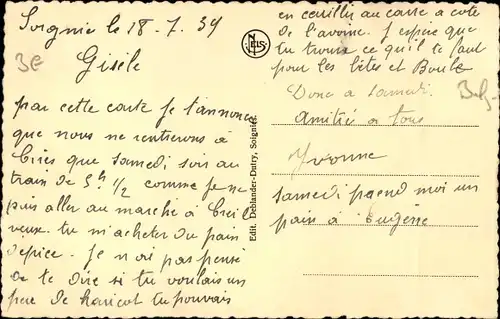 Soignie le 18-7.39
Gisèle
par cette carte je t'annonce
que nous ne rentrerons à
que samedi soir au
train de 5h 1/2 comme je ne
puis aller au marché à
veux tu m'acheter du pain
d'epice. Je n'ai pas pensé
de te dire si tu voulais un
peu de haricot tu pouvais
Edit. Deblander-Dutry, Soignies.
NELS
en cueillir au carré a coté
de l'avoine. J'espère que
tu trouve ce qu'il te faut
pour les bêtes et Boule
Donc a samedi.
Amitié a tous
Yvonne
samedi prend moi un
pain à eugène
3E